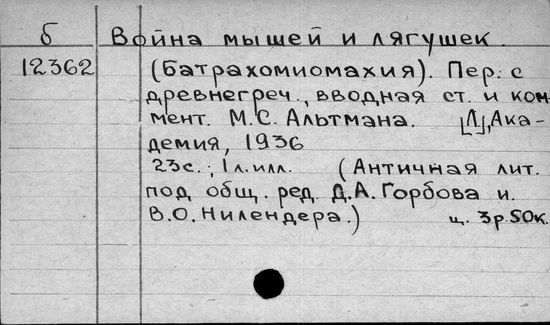 б Война мышей и лягушек.
12362 (Батрахомиомахия). Пер. с
древнегреч., вводная ст. и ком
мент. М.С. Альтмана. [Л], Ака-
демия, 1936
23с.; 1л.илл. (Античная лит.
под общ. ред. Д.А. Горбова и.
В.О. Нилендера.) ц. 3р.50к.